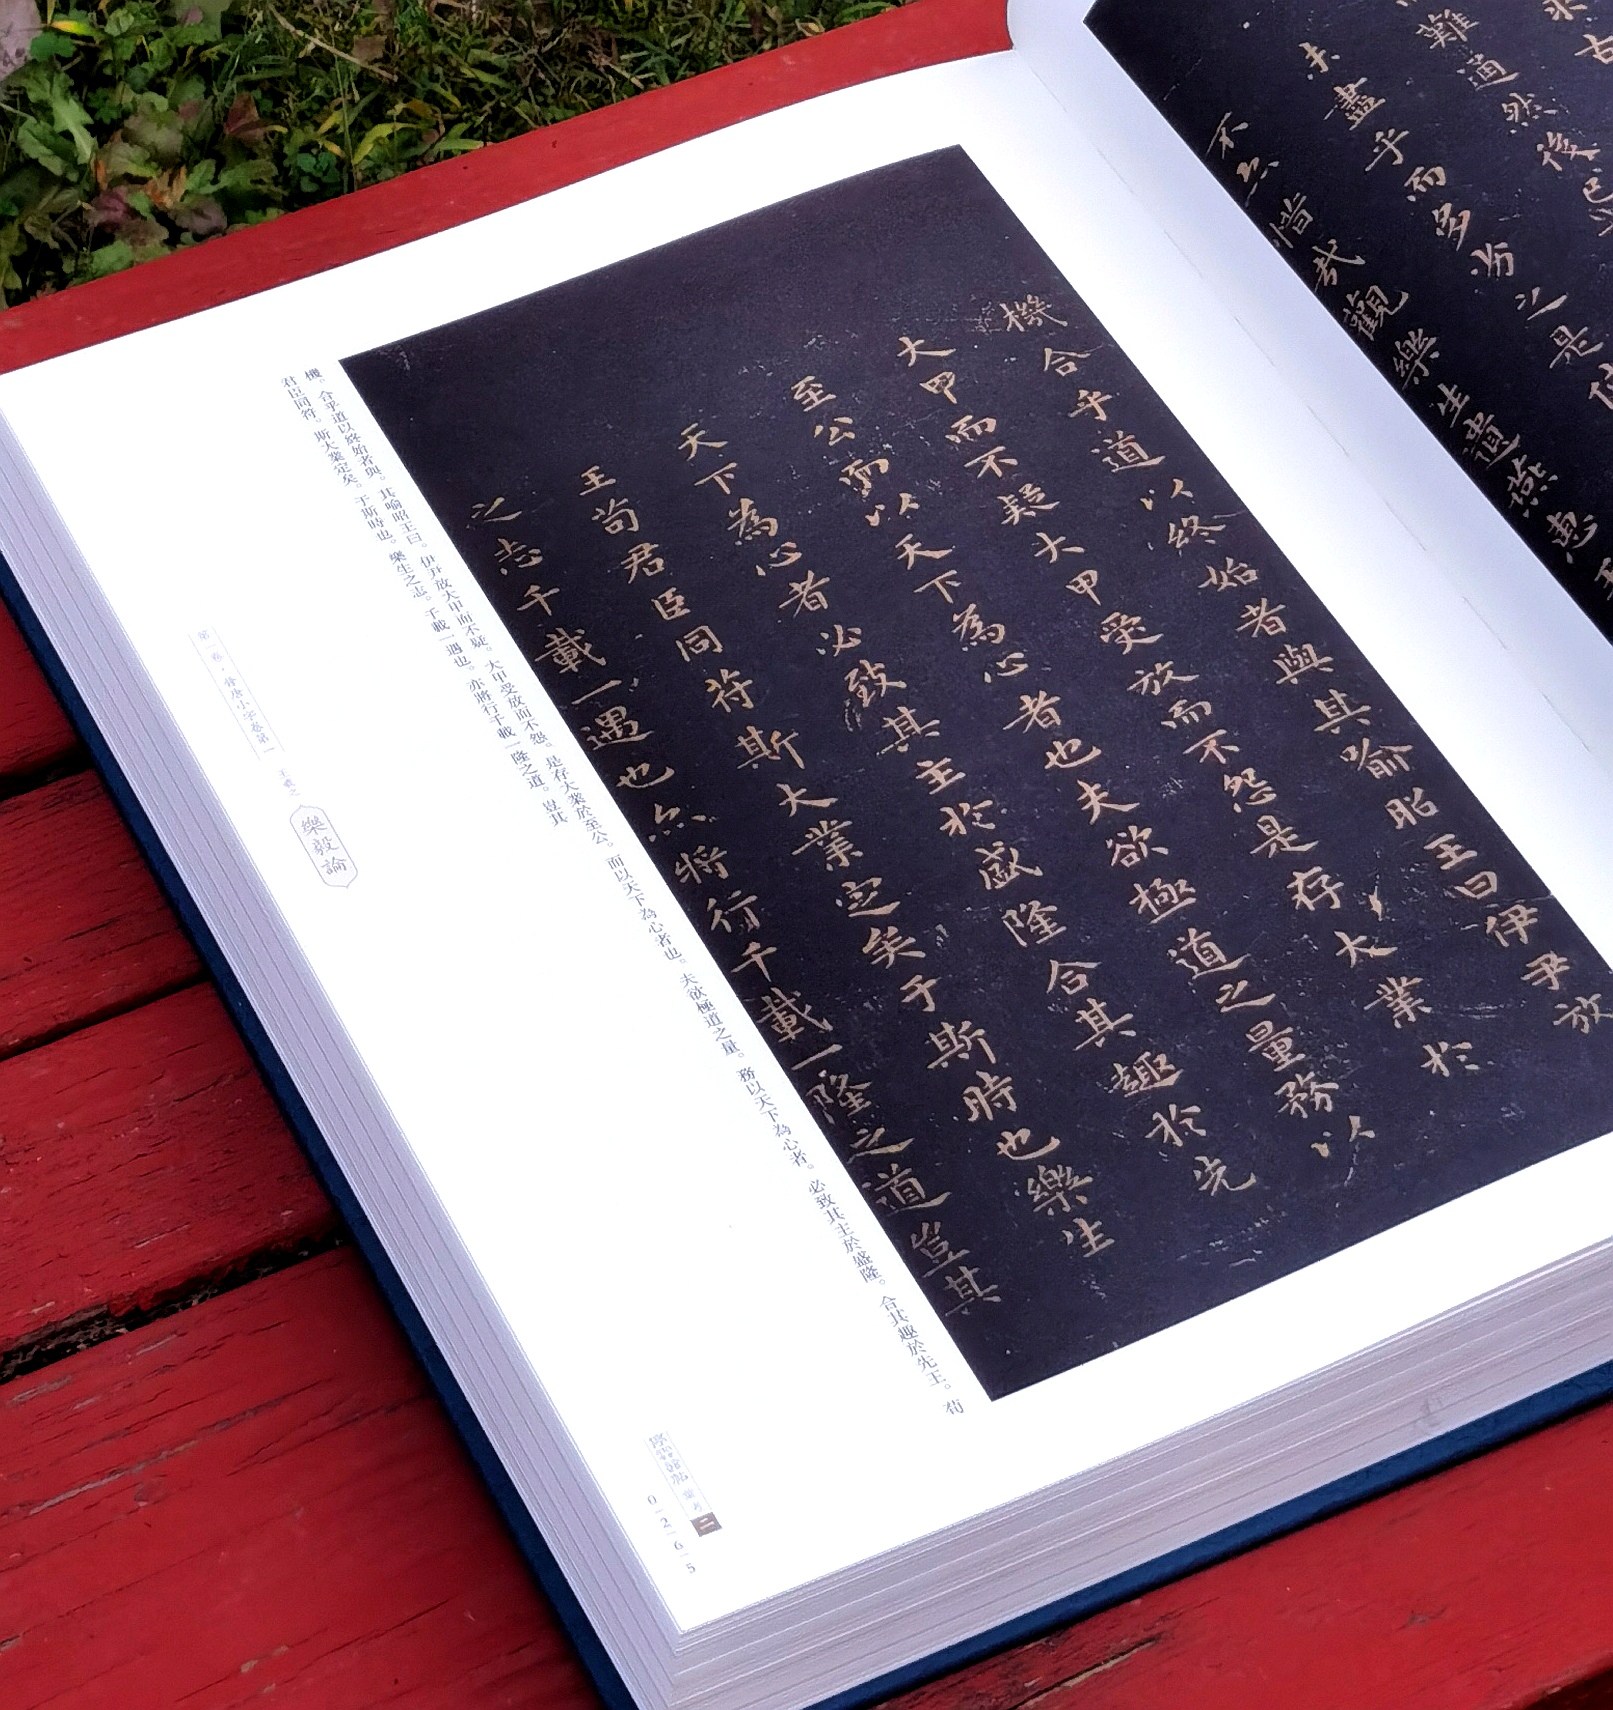 求古
難通然後已
未盡乎而多劣之是使
不亦惜哉觀樂生遺燕惠王
機合乎道以終始者與其喻昭王曰伊尹放
大甲而不疑大甲受放而不怨是存大業於
至公而以天下為心者也夫欲極道之量務以
天下為心者必致其主於盛隆合其趣於先
王苟君臣同符斯大業定矣于斯時也樂生
之志千載一遇也亦將行千載一隆之道豈其
機。合乎道以終始者與。其喻昭王曰。伊尹放大甲而不疑。大甲受放而不怨。是存大業於至公。而以天下為心者也。夫欲極道之量。務以天下為心者。必致其主於盛隆。合其趣於先王。苟
君臣同符。斯大業定矣。于斯時也。樂生之志。千載一遇也。亦將行千載一隆之道。豈其
第一卷·晉唐小字卷第一 王羲之 樂毅論
二
0265